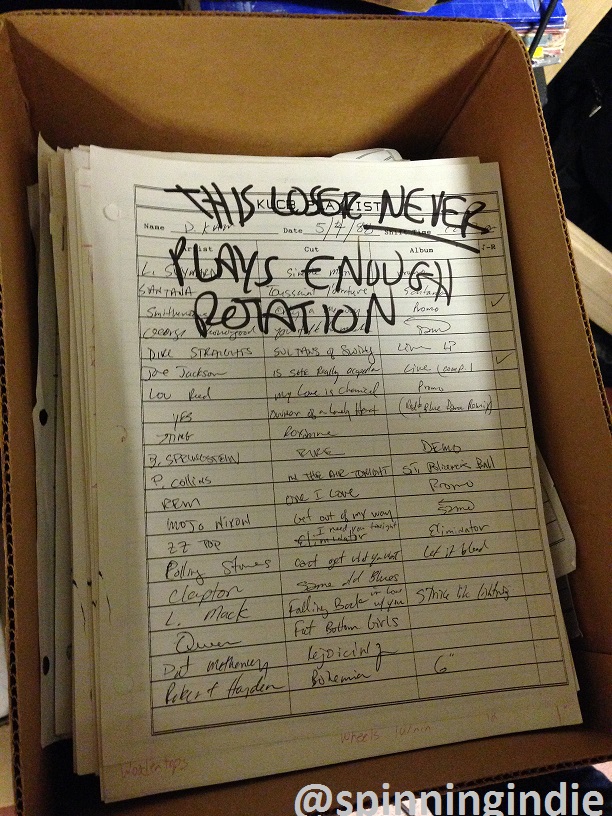 THIS LOSER NEVER
KUCB PLAYLIST
Name D. Date 5/4/8 Shift Time
PLAYS ENOUGH
Artist Cut Album J-R
L. Simple Man
SANTANA Toussaint Santana
ROTATION
Smithereens Promo
George Same
DIRE STRAIGHTS SULTANS of Swing Live
Joe Jackson is she Really Live (comp.)
Lou Reed My Love is Chemical Promo
YES owner of a lonely Heart (Red + Blue Remix)
STING Roxanne
B. SPRUNGSTEIN FIRE DEMO
P. Collins IN THE AIR TONIGHT Ball
REM One I Love Promo
MOJO NIXON Get out of my way Same
ZZ TOP I need you tonight Eliminator
Rolling Stones Cant get Let it bleed
Clapton Same old Blues
L. Mack Falling Back in love w/you Strike like lightning
Queen Fat Bottom Girls
Pat Metheny Rejoicing
Robert Hayden Bohemia 6"
Woodentops wheels
@spinningindie